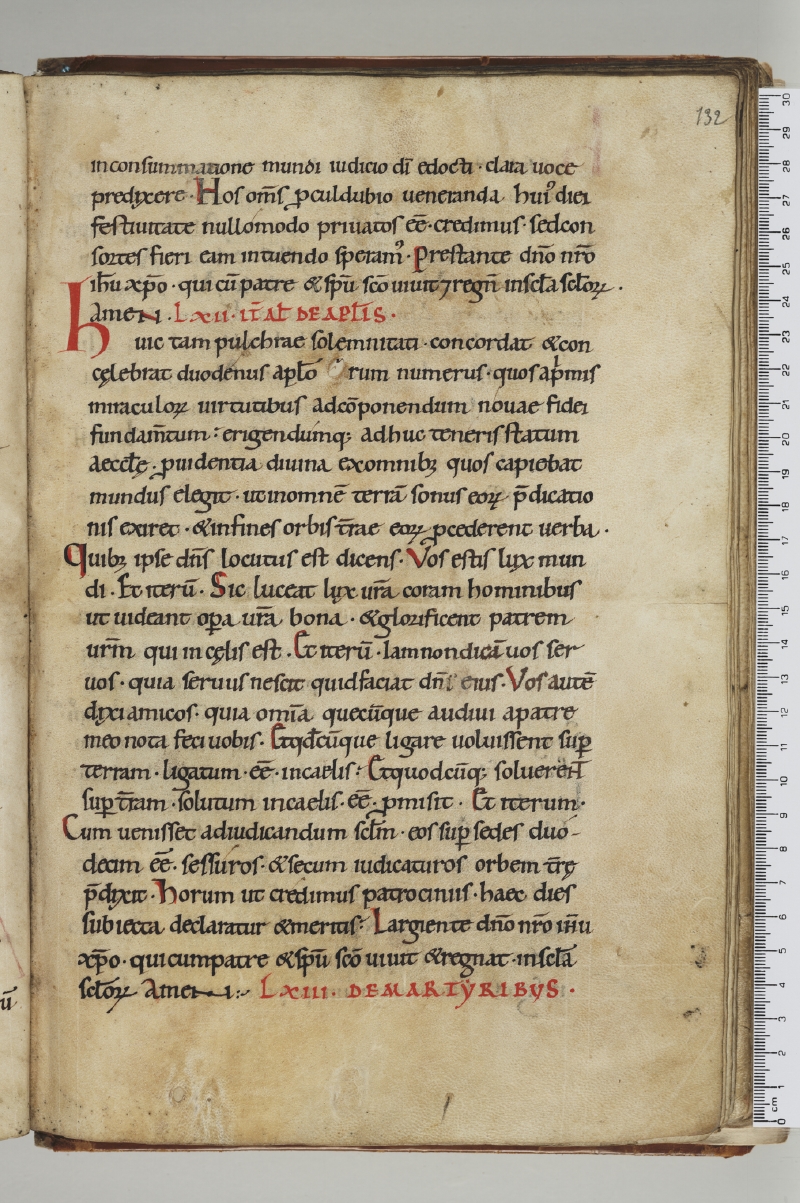 132
inconsummatione mundi iudicio dī edocti · clara uoce
predixere · Hos om̄s ꝓculdubio ueneranda hui᾽ diei
festiuitate nullomodo priuatos ēē · credimus · sedcon
sortes fieri eam intuendo speram᾽ · Prestante dn̄o nr̄o
ih̄u xp̄o · qui cū patre &sp̄u sc̄o uiuit ⁊ regn̄ insc̄la sclōꝝ ·
amen · LXII · IT̄ AL̄ DE APL̄IS ·
Huic tam pulchrae solemnitati · concordat &con
cęlebrat duodenus apl̄o rum numerus · quos ap̄mis
miraculoꝝ uirtutibus adcōponendum nouae fidei
fundam̄tum · erigendumq; adhuc teneris statum
aeccl̄ę · ꝓuidentia diuina exomnibꝫ quos capiebat
mundus elegit · ut inomnē terrā sonus eoꝝ p̄dicatio
nis exiret · &infines orbis t̄rae eoꝝ ꝓcederent uerba ·
Quibꝫ ipse dn̄s locutus est dicens · Vos estis lux mun
di · Et iterū · Sic luceat lux ur̄a coram hominibus
ut uideant oꝑa ur̄a bona · &glorificent patrem
urm̄ qui in cęlis est · Et iterū · Iam non dicā uos ser
uos · quia seruus nescit quid faciat dn̄s eius · Vos autē
dixi amicos · quia omīa quecūque audiui apatre
meo nota feci uobis · Etqd̄cūque ligare uoluissent suꝑ
terram · ligatum · ēē · incaelis · Etquodcūq; soluerent
suꝑ t̄ram · solutum incaelis · ēē · ꝓmisit · Et iterum ·
Cum uenisset adiudicandum sclm̄ · eos suꝑ sedes duo-
decim ēē · sessuros · &secum iudicaturos orbem t̄rę
p̄dixit · Horum ut credimus patrociniis · haec dies
subiecta declaratur &meritis · Largiente dn̄o nr̄o ih̄u
xp̄o · qui cumpatre &sp̄u sc̄o uiuit &regnat · insclā
sclōꝝ Amen · LXIII · DE MARTYRIBUS ·
ū